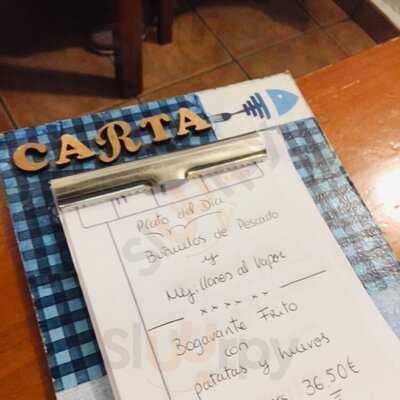 CARTA
Plato del Dia
Buñuelos de Pescado
y
Mejillones al Vapor
Bogavante Frito
con
patatas y huevos
36.50€
sluurpy